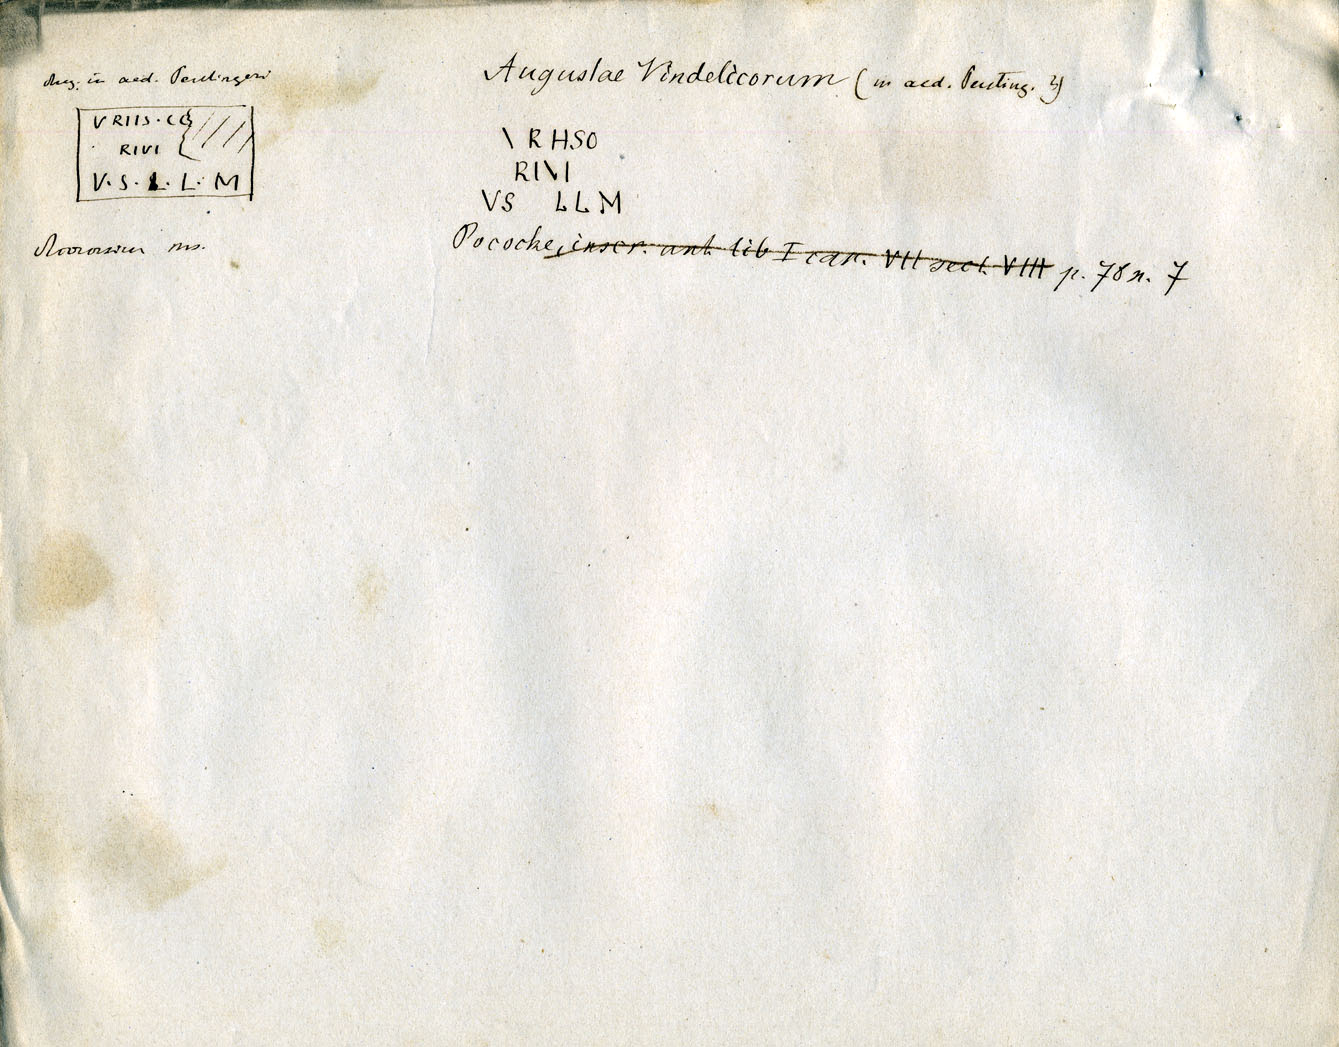 Aug. in aed. Peutingeri
VRIIS · CO
RIVI
V · S · L · L · M
ms.
Augustae Vindelicorum (in aed. Peuting. ?)
\ R HSO
RIVI
VS LLM
Pococke, inscr. ant. lib I cap. VII sect. VIII p. 78 n. 7